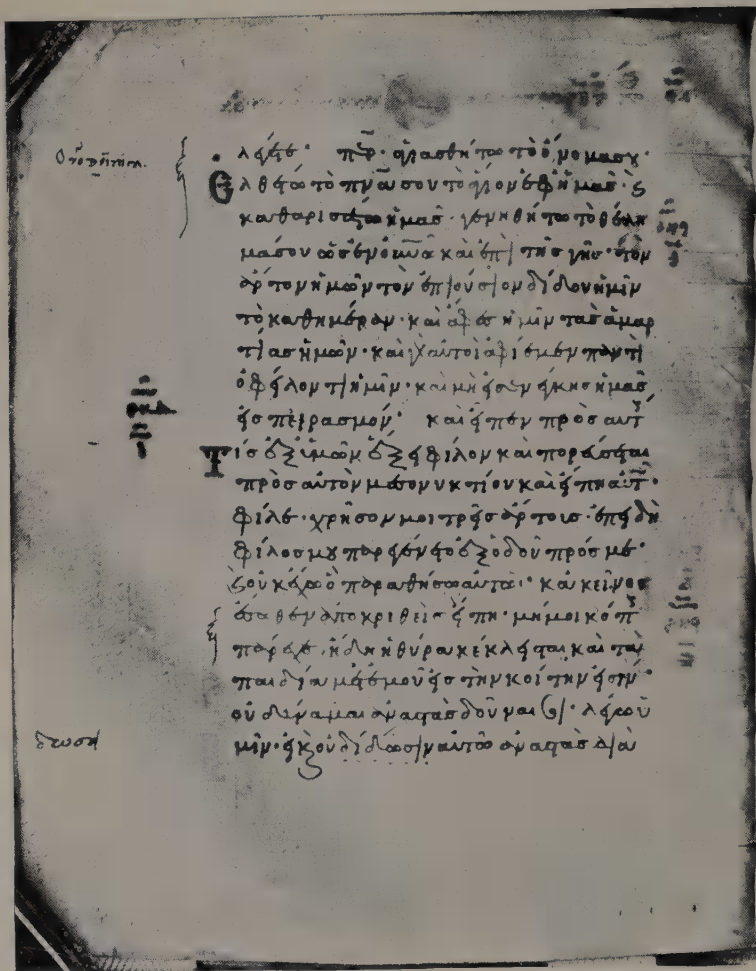 λέγετε· πε̅ρ· ἁγιασθήτω τὸ ὄνομά σου·
Ελθέτω τὸ πν̅α σου τὸ ἅγιον ἐφ ἡμᾶς· καὶ
καθαρισάτω ἡμᾶς· γενηθήτω τὸ θέλη
μά σου ὡς ἐν οὐνω̅ καὶ ἐπὶ τῆς γῆς· τὸν
ἄρτον ἡμῶν τὸν ἐπιούσιον δίδου ἡμῖν
τὸ καθημέραν· καὶ ἄφες ἡμῖν τὰς ἁμαρ
τίας ἡμῶν· καὶ γὰρ αὐτοὶ ἀφίεμεν παντὶ
ὀφείλοντι ἡμῖν· καὶ μὴ εἰσενείκης ἡμᾶς
εἰς πειρασμόν· καὶ εἶπεν πρὸς αὐτ
Τίς ἐξ ὑμῶν ἕξει φίλον καὶ πορεύσεται
πρὸς αὐτὸν μεσονυκτίου καὶ εἴπη αὐτ·
φίλε· χρῆσόν μοι τρεῖς ἄρτους· ἐπειδὴ
φίλος μου παρεγένετο ἐξ ὁδοῦ πρός με·
καὶ οὐκ ἔχω ὃ παραθήσω αὐτῶ· κἀκεῖνος
ἔσωθεν ἀποκριθεὶς εἴπη· μή μοι κόπ
πάρεχε· ἤδη ἡ θύρα κέκλεισται καὶ τὰ
παιδία μετ ἐμοῦ εἰς τὴν κοίτην εἰσίν·
οὐ δύναμαι ἀναστὰς δοῦναί σοι· λέγω ὑ
μῖν· εἰ κ οὐ δίδωσιν αὐτῶ ἀναστὰς διὰ